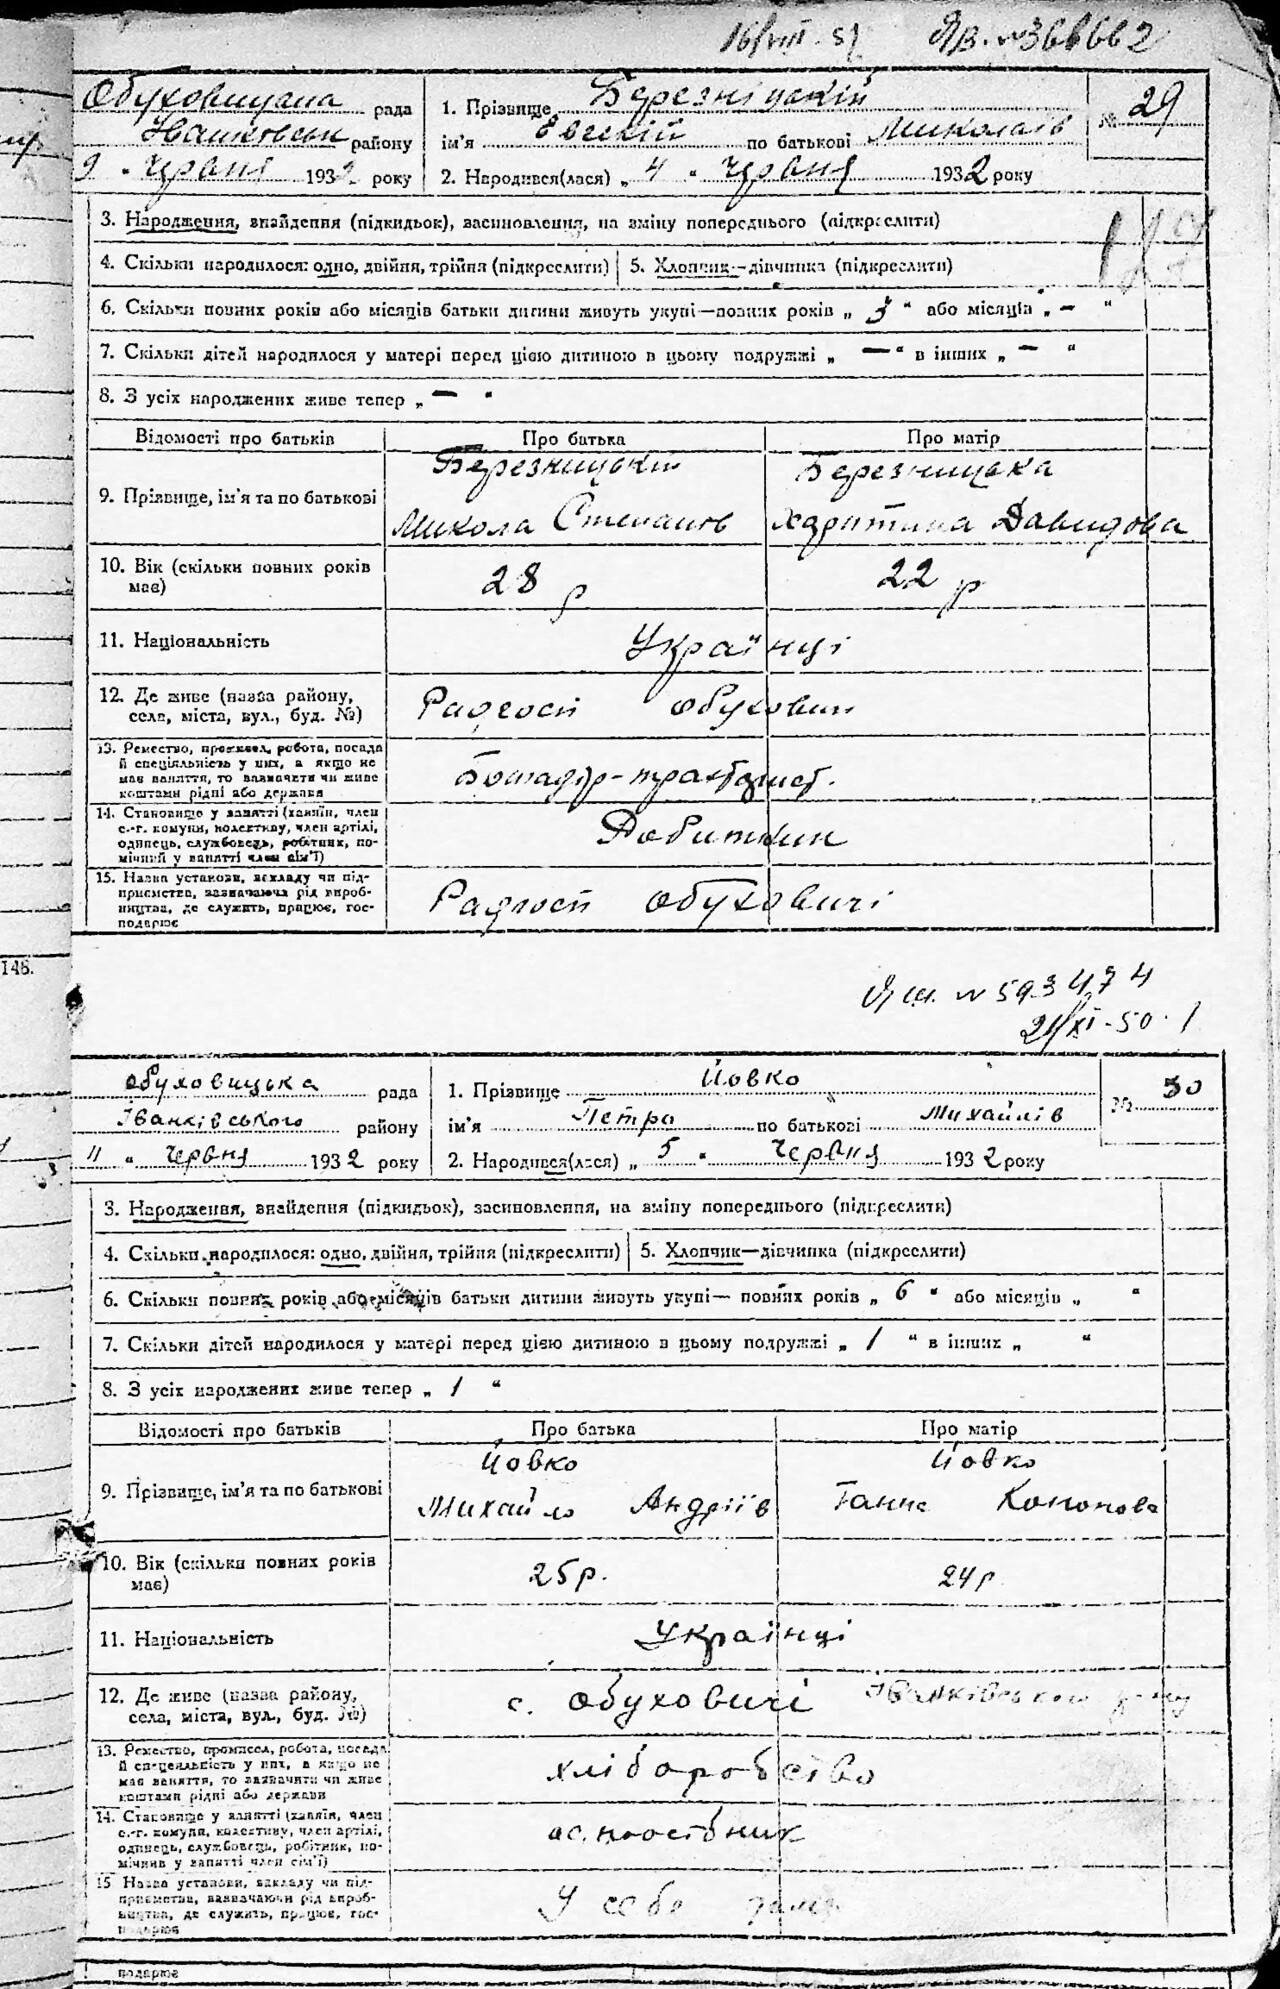 16/VIII-51 ЯВ. №366662
Обуховицька рада 1. Прізвище Березніцкій № 29
Іванковськ району ім'я Евгекій по батькові Миколаїв
9 „ Червня 1932 року 2. Народився(лася) „ 4 " Червня 1932 року
3. Народження, знайдення (підкидьок), засиновлення, на зміну попереднього (підкреслити)
4. Скільки народилося: одно, двійня, трійня (підкреслити) 5. Хлопчик—дівчинка (підкреслити)
6. Скільки повних років або місяців батьки дитини живуть укупі—повних років „ 3 " або місяців „ — "
7. Скільки дітей народилося у матері перед цією дитиною в цьому подружжі „ — " в інших „ — "
8. З усіх народжених живе тепер „ — "
Відомості про батьків Про батька Про матір
Березницкій Березницька
9. Прізвище, ім'я та по батькові
Микола Степанов Харитина Давидова
10. Вік (скільки повних років має) 28 р 22 р
11. Національність Українці
12. Де живе (назва району, села, міста, вул., буд. №) Радгосп Обухович
13. Ремество, промисел, робота, посада й спеціяльність у них, а якщо не має заняття, то зазначити чи живе коштами рідні або держави
14. Становище у занятті (хазяїн, член с.-г. комуни, колективу, член артілі, одинець, службовець, робітник, помічний у занятті член сім'ї) Робитник
15. Назва установи, закладу чи підприємства, зазначаючи рід виробництва, де служить, працює, господарює Радгосп Обуховичі
146.
№ 593474
21/XI-50
Обуховицька рада 1. Прізвище Йовко № 30
Іванківського району ім'я Петро по батькові Михайлів
11 „ Червня 1932 року 2. Народився(лася) „ 5 " Червня 1932 року
3. Народження, знайдення (підкидьок), засиновлення, на зміну попереднього (підкреслити)
4. Скільки народилося: одно, двійня, трійня (підкреслити) 5. Хлопчик—дівчинка (підкреслити)
6. Скільки повних років або місяців батьки дитини живуть укупі— повних років „ 6 " або місяців „ "
7. Скільки дітей народилося у матері перед цією дитиною в цьому подружжі „ 1 " в інших „ "
8. З усіх народжених живе тепер „ 1 "
Відомості про батьків Про батька Про матір
Йовко Йовко
9. Прізвище, ім'я та по батькові
Михайло Андріїв Ганна Кононова
10. Вік (скільки повних років має) 25 р. 24 р
11. Національність Українці
12. Де живе (назва району, села, міста, вул., буд. №) с. Обуховичі Іванківського р-ну
13. Ремество, промисел, робота, посада й спеціяльність у них, а якщо не має заняття, то зазначити чи живе коштами рідні або держави хліборобство
14. Становище у занятті (хазяїн, член с.-г. комуни, колективу, член артілі, одинець, службовець, робітник, помічник у занятті член сім'ї)
15 Назва установи, закладу чи підприємства, зазначаючи рід виробництва, де служить, працює, господарює У себе дома
подарює